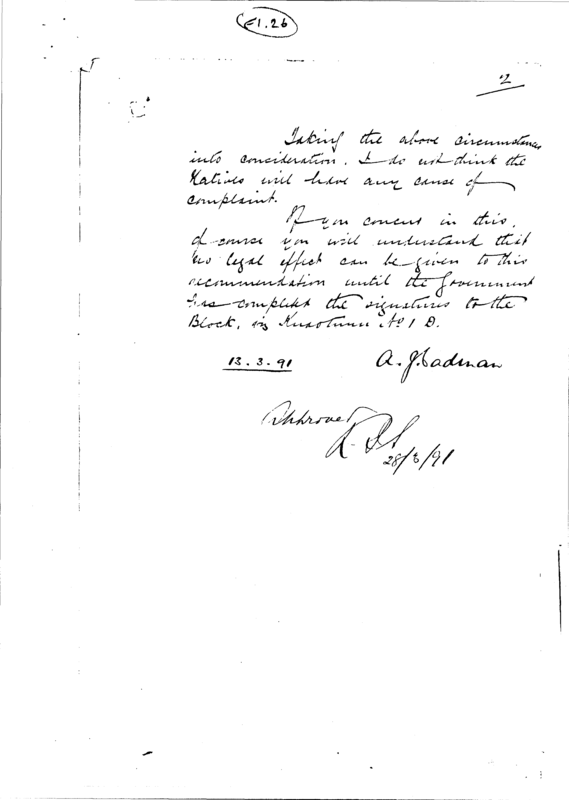 E1.26
2
Taking the above circumstances
into concideration. I do not think the
Natives will have any cause of
complaint.
If you concur in this,
of course you will understand that
no legal effect can be given to this
recommendation until the Government
has completed the signatures to the
Block, viz Kuaotunu No 1 D.
13.3.91 A. J. Cadman
Approved
28/3/91